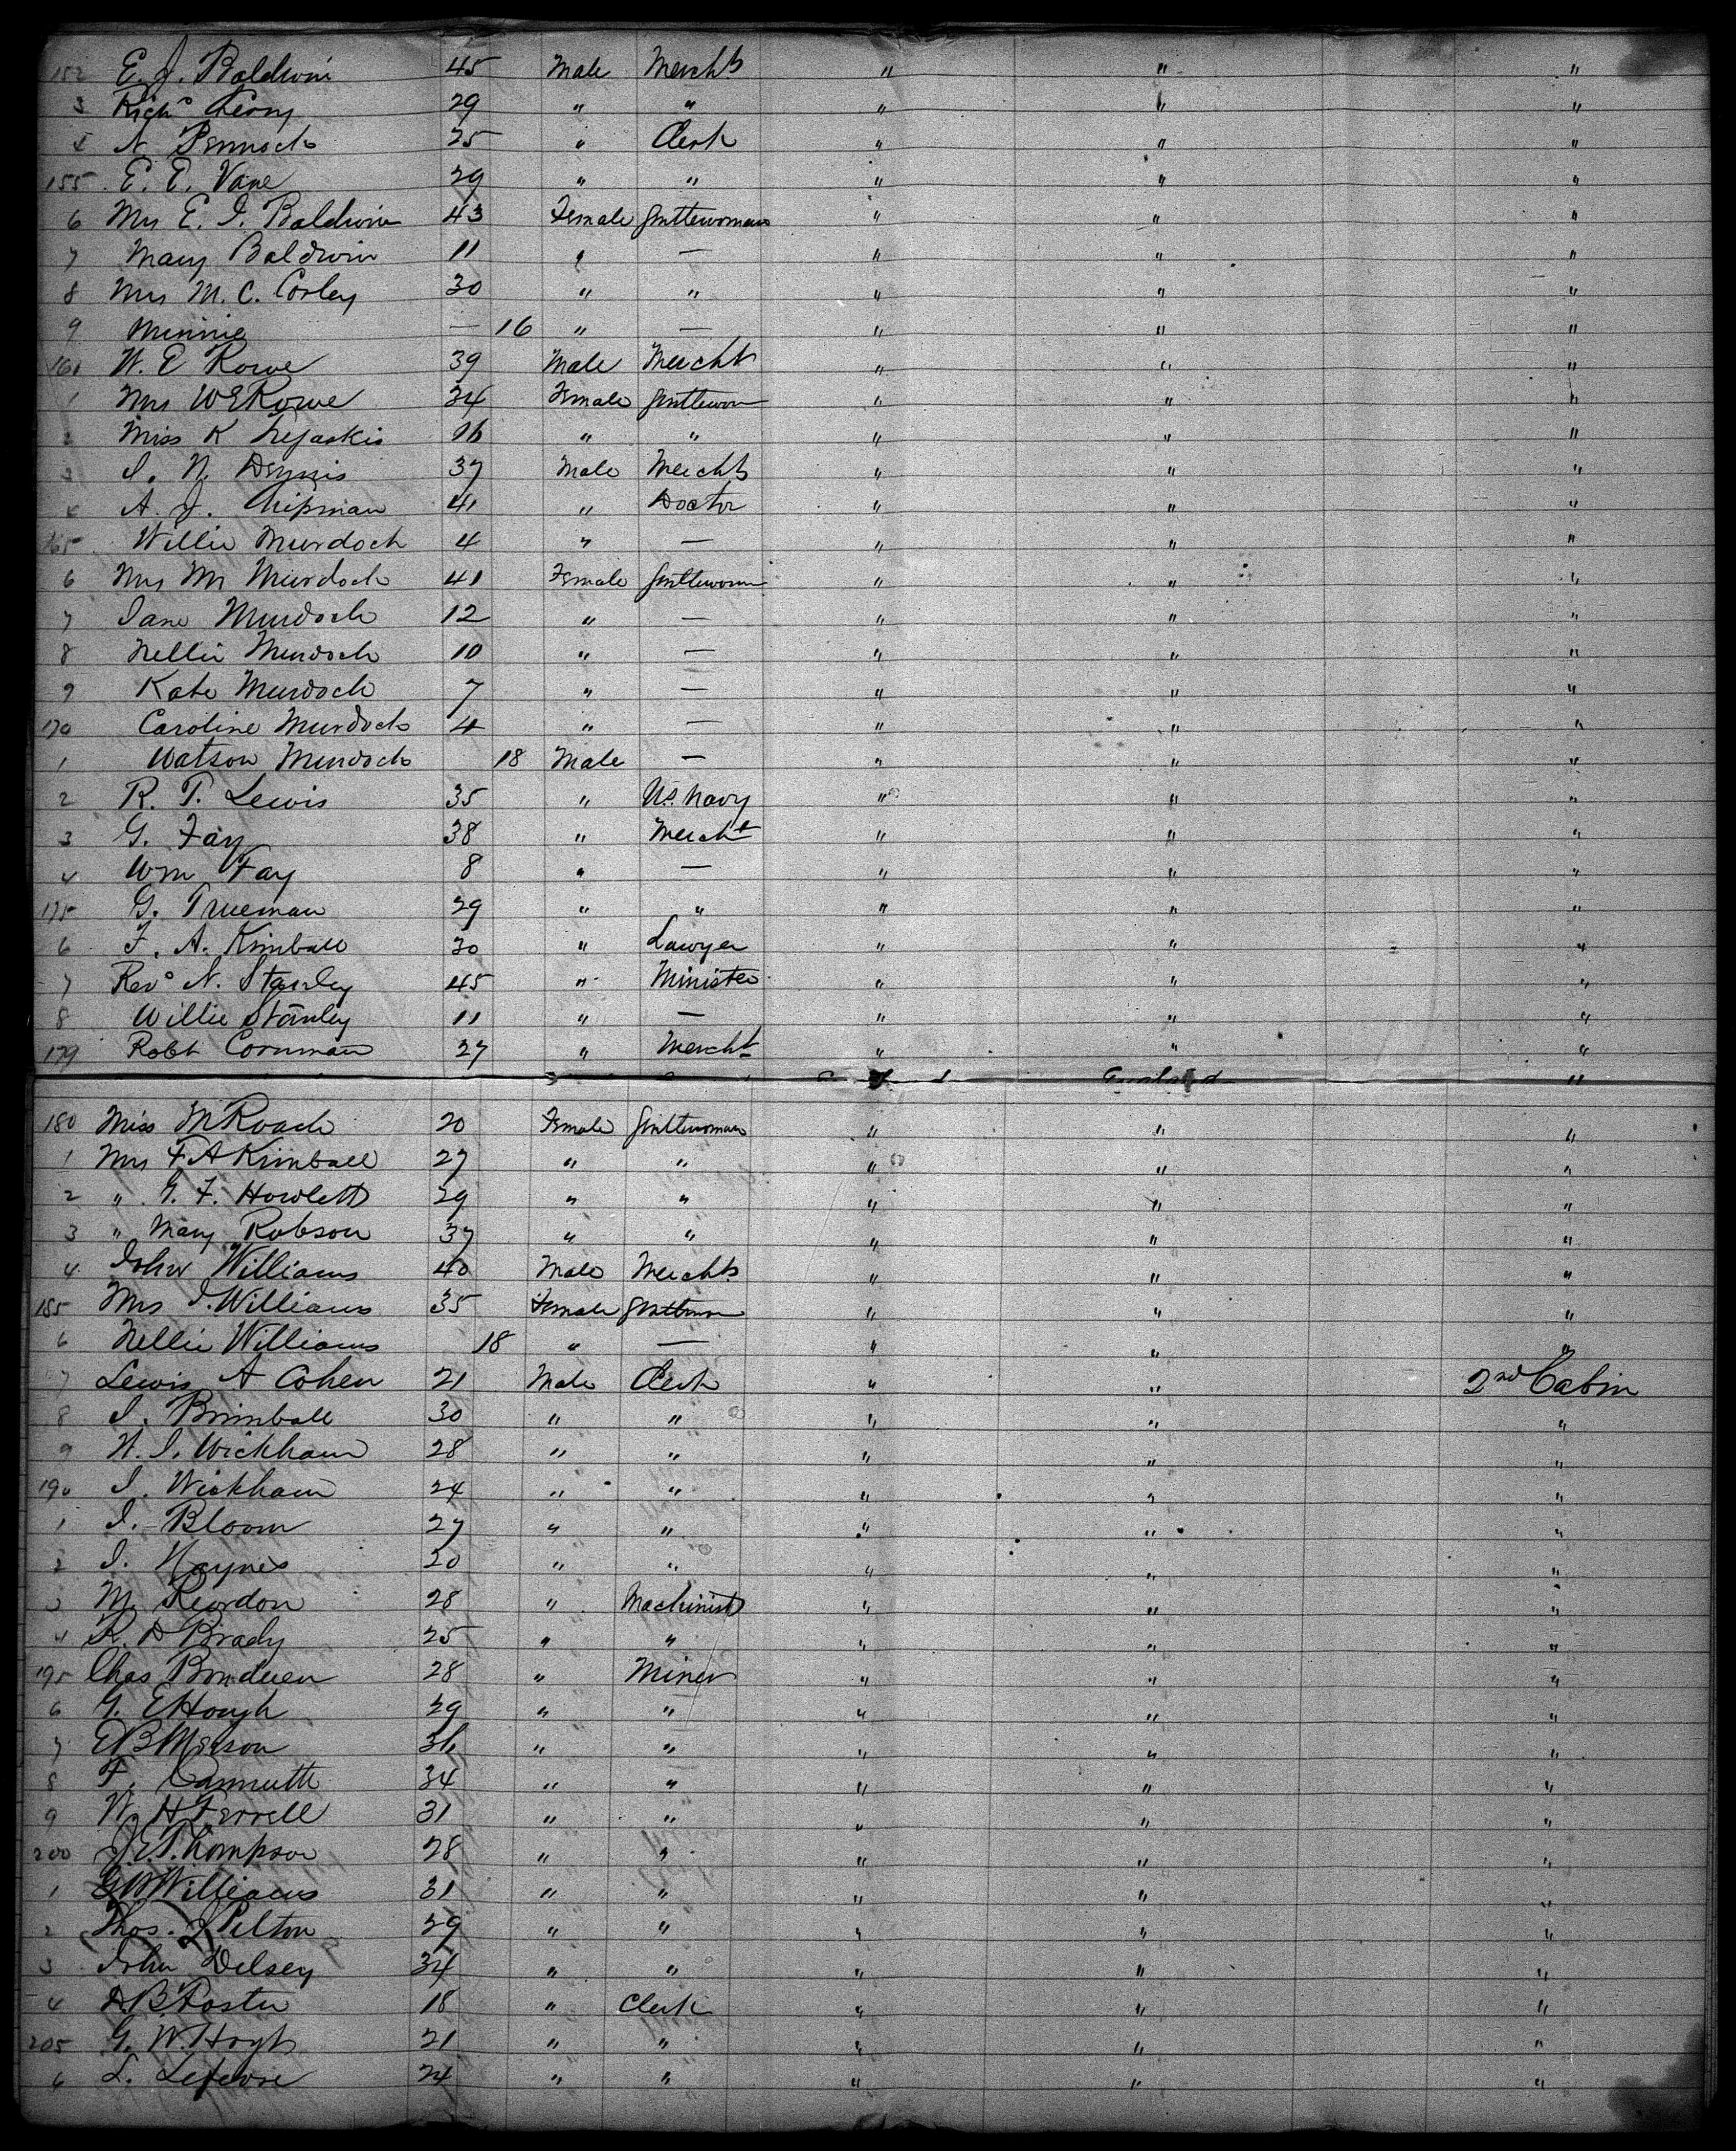 152 E. J. Baldwin 45 Male Mercht " " "
3 Rich^d 29 " " " " "
4 N. 25 " Clerk " " "
155 E. E. Vane 29 " " " " "
6 Mrs E. J. Baldwin 43 Female Gentlewoman " " "
7 Mary Baldwin 11 " — " " "
8 Mrs M. C. Corley 30 " " " " "
9 Minnie — 16 " — " " "
W. E Rowe 39 Male Mercht " " "
1 Mrs W E Rowe 34 Female Gentlewom " " "
2 Miss K 16 " " " " "
3 J. N. Dennis 37 Male Mercht " " "
4 A. J. Chipman 41 " Doctor " " "
165 Willie Murdoch 4 " — " " "
6 Mrs M Murdoch 41 Female Gentlewom " " "
7 Jane Murdoch 12 " — " " "
8 Nellie Murdoch 10 " — " " "
9 Kate Murdoch 7 " — " " "
170 Caroline Murdoch 4 " — " " "
1 Watson Murdoch 18 Male — " " "
2 R. T. Lewis 35 " U.S. Navy " " "
3 G. Fay 38 " Mercht " " "
4 Wm Fay 8 " — " " "
175 G. Trueman 29 " " " " "
6 F. A. Kimball 30 " Lawyer " " "
7 Rev^d N. Stanley 45 " Minister " " "
8 Willie Stanley 11 " — " " "
179 Robt Cornman 27 " Mercht " " "
England "
180 Miss M Roach 20 Female Gentlewoman " " "
1 Mrs F A Kimball 27 " " " " "
2 " G. F. Howlett 29 " " " " "
3 " Mary Robson 37 " " " " "
4 John Williams 40 Male Mercht " " "
185 Mrs J. Williams 35 Female Gentlewom " " "
6 Nellie Williams 18 " — " " "
7 Lewis A Cohen 21 Male Clerk " " 2nd Cabin
8 J. Brimball 30 " " " " "
9 W. J. Wickham 28 " " " " "
190 J. Wickham 24 " " " " "
1 J. Bloom 27 " " " " "
2 J. Haynes 20 " " " " "
3 M. Reardon 28 " Machinist " " "
4 R. D Brady 25 " " " " "
195 Chas 28 " Miner " " "
6 G. E Hough 29 " " " " "
7 E B Merson 36 " " " " "
8 F. Cammutte 34 " " " " "
9 W. H Ferrell 31 " " " " "
200 J. E. Thompson 28 " " " " "
1 G W Williams 31 " " " " "
2 Thos. J Pelton 29 " " " " "
3 John Delsey 34 " " " " "
4 D. B. Foster 18 " Clerk " " "
205 G. W. Hoyt 21 " " " " "
6 L. Lefevre 24 " " " " "